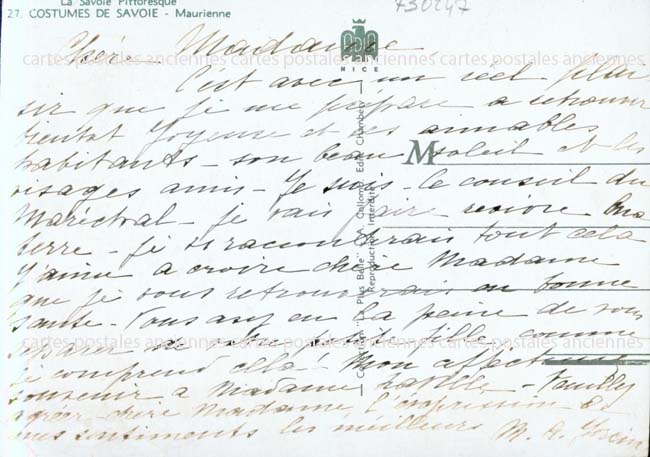 La Savoie Pittoresque
27. COSTUMES DE SAVOIE - Maurienne
730247
Chère Madame
NICE
C'est avec un réel plai
sir que je me prépare a retrouver
bientôt Joyeuse et ses aimables
habitants - son beau soleil et les
visages amis - Je suis - le conseil du
Maréchal - je vais faire revivre ma
terre - je vs raconterais tout cela
J'aime a croire chère Madame
que je vous retrouverais en bonne
santé. Vous avez eu la peine de vous
séparer de votre petite fille comme
je comprend cela! Mon affectueux
souvenir a Madame - Veuillez
agréer chère Madame, l'expression de
mes sentiments les meilleurs M. A.
M
Collection "La Plus Belle" A. Gallome Edit. Chambéry
Reproduction Interdite
cartes postales anciennes cartes postales anciennes cartes postales anciennes